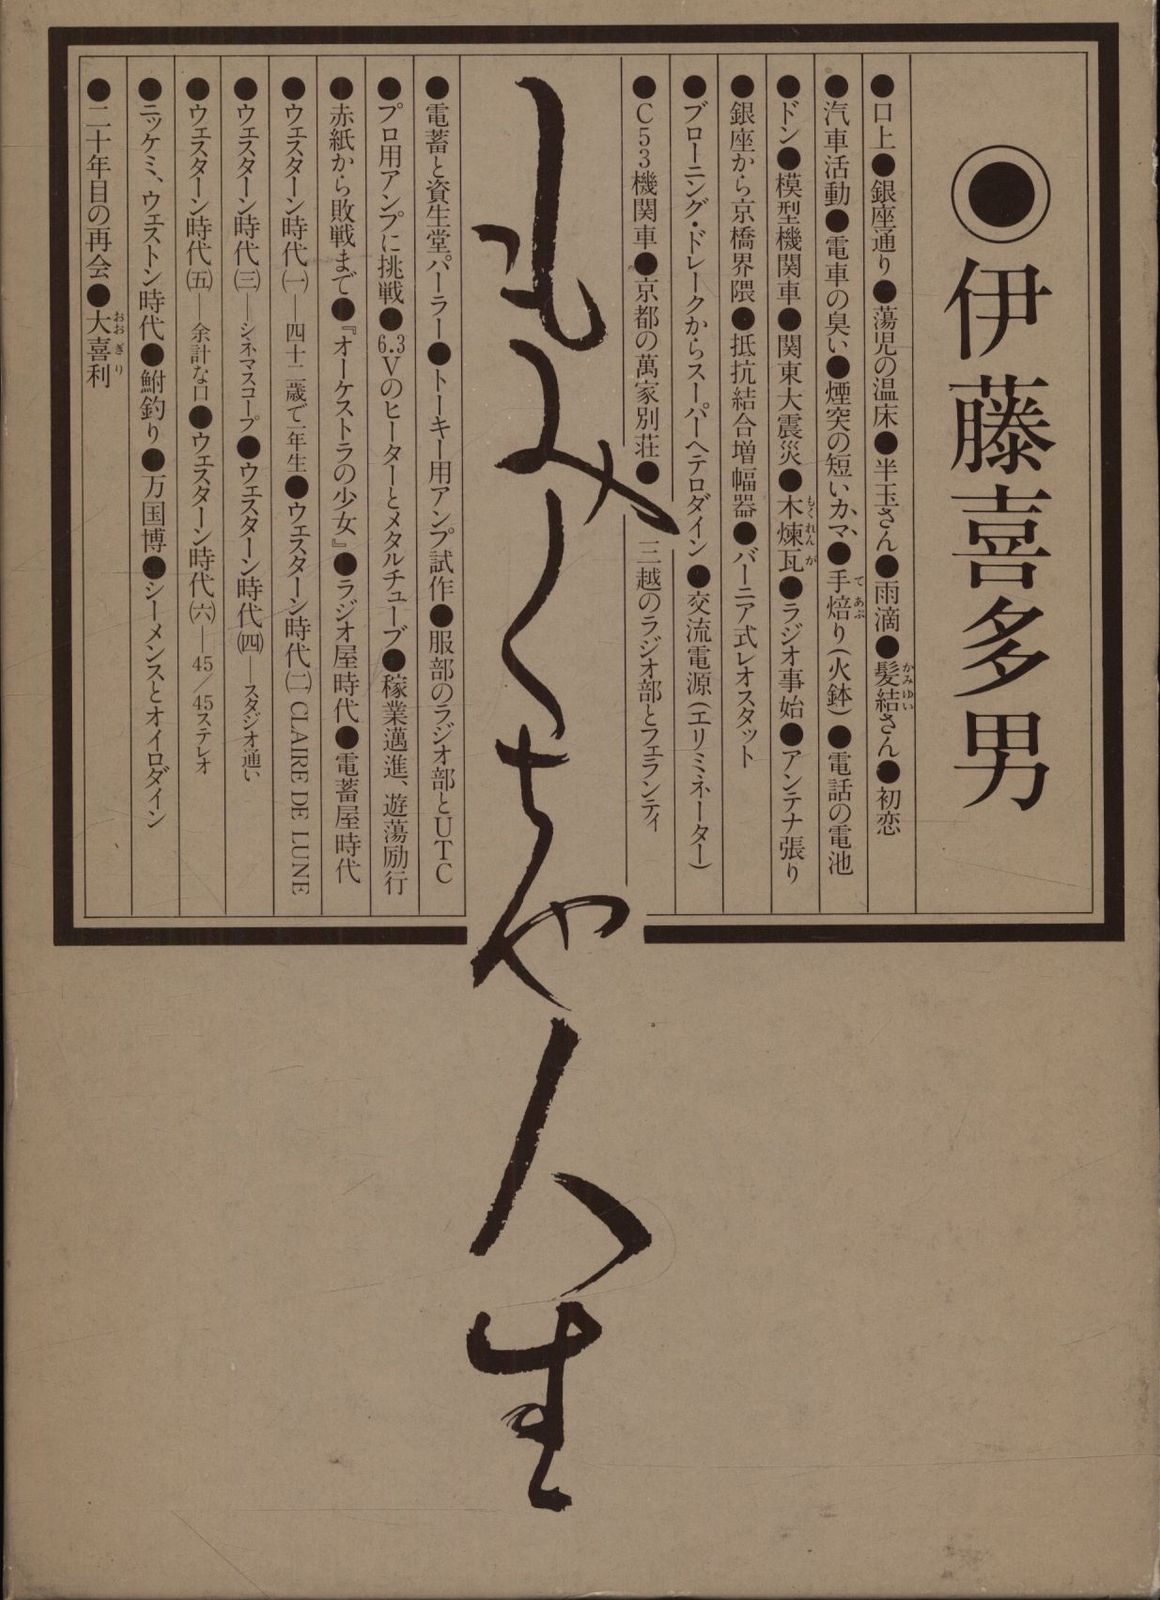 ◉伊藤喜多男
●口上●銀座通り●蕩児の温床●半玉さん●雨滴●髪結さん●初恋
かみゆい
●汽車活動●電車の臭い●煙突の短いカマ●手焙り(火鉢)●電話の電池
てあぶ
●ドン●模型機関車●関東大震災●木煉瓦●ラジオ事始●アンテナ張り
もくれんが
●銀座から京橋界隈●抵抗結合増幅器●バーニア式レオスタット
●ブローニング・ドレークからスーパーヘテロダイン●交流電源(エリミネーター)
●C53機関車●京都の萬家別荘●三越のラジオ部とフェランティ
もみくちゃ人生
●電蓄と資生堂パーラー●トーキー用アンプ試作●服部のラジオ部とUTC
●プロ用アンプに挑戦●6.3Vのヒーターとメタルチューブ●稼業邁進、遊蕩励行
●赤紙から敗戦まで●『オーケストラの少女』●ラジオ屋時代●電蓄屋時代
●ウェスターン時代㈠―四十二歳で一年生●ウェスターン時代㈡ CLAIRE DE LUNE
●ウェスターン時代㈢―シネマスコープ●ウェスターン時代㈣―スタジオ通い
●ウェスターン時代㈤―余計な口●ウェスターン時代㈥―45/45ステレオ
●ニッケミ、ウェストン時代●鮒釣り●万国博●シーメンスとオイロダイン
●二十年目の再会●大喜利
おおぎり